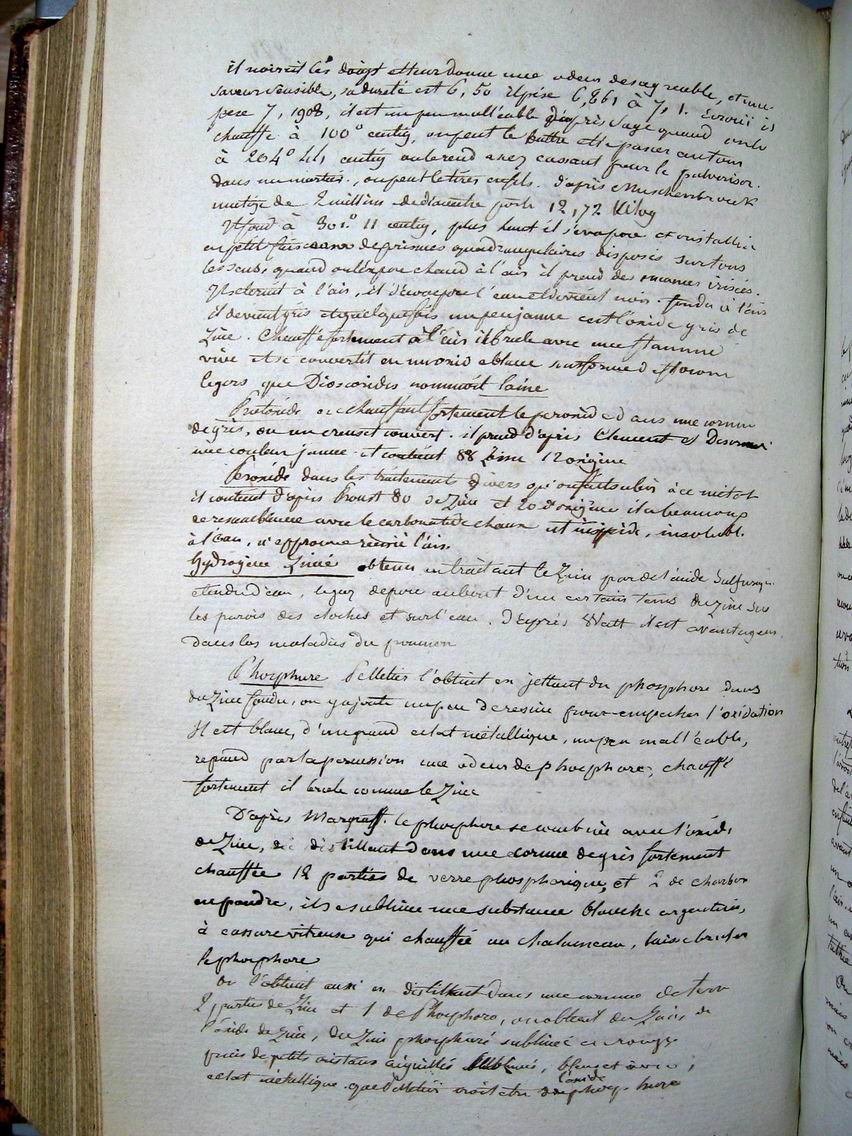 il noircit les doigts et leur donne une odeur desagreable, et une
saveur sensible, sa dureté est 6, 50 il pese 6,861 à 7, 1. Ecroui il
pese 7, 1908, il est un peu malléable d'après Sage quand on le
chauffe à 100° centig, on peut le battre et le passer au
à 204° 44 centig on le rend assez cassant pour le pulveriser
dans un mortier, on peut le tirer en fils. d'après Muschenbroeck
une tige de 2 millim de diametre porte 12,72 Kilog
Il fond à 301.° 11 centig, plus haut il s'evapore et cristallise
en petit faisceaux de prismes quadrangulaires disposés sur tous
les sens, quand on l'expose chaud à l'air il prend des nuances irisées.
Il se ternit à l'air, il decompose l'eau et devient noir. fondu à l'air
il devient gris et quelquefois un peu jaune c'est l'oxide gris de
Zinc. Chauffé fortement à l'air il brule avec une flamme
vive et se convertit en un oxid blanc sous forme de flocons
legers que Dioscorides nommoit laine
Protoxide en chauffant fortement le peroxide dans une cornue
de grès, ou un creuset couvert. il prend d'après Clement et Desormes
une couleur jaune et contient 88 Zinc 12 oxigene
Peroxide dans les traitements divers qu'on fait subir à ce metal
il contient d'après Proust 80 de Zinc et 20 d'oxigene il a beaucoup
de ressemblance avec le carbonate de chaux il est insipide, insoluble
à l'eau, n'eprouve rien à l'air.
Hydrogène Zincé obtenu en traitant le Zinc par de l'acide Sulfuriq.
etendu d'eau, le gaz depose au bout d'un certain tems du Zinc sur
les parois des cloches et sur l'eau. D'après Watt il est avantageux
dans les maladies du poumon
Phosphure Pelletier l'obtint en jettant du phosphore dans
du Zinc fondu, on y ajoute un peu de resine pour empecher l'oxidation
Il est blanc, d'un grand eclat métallique, un peu malléable,
repand par la percussion une odeur de phosphore, chauffé
fortement il brule comme le Zinc
D'après Margraff. le phosphore se combine avec l'oxide
de Zinc, en distillant dans une cornue de grès fortement
chauffée 12 parties de verre phosphorique, et 2 de charbon
en poudre, il se sublime une substance blanche argentine,
à cassure vitreuse qui chauffée au chalumeau, laisse bruler
le phosphore
On l'obtient aussi en distillant dans une cornue de terre
2 parties de Zinc et 1 de Phosphore, on obtient du Zinc, de
l'oxide de Zinc, du Zinc phosphuré sublimé en rouge
puis de petits cristaux aiguillés sublimés, bleus et
eclat métallique que Pelletier croit etre de l'oxide phosphure